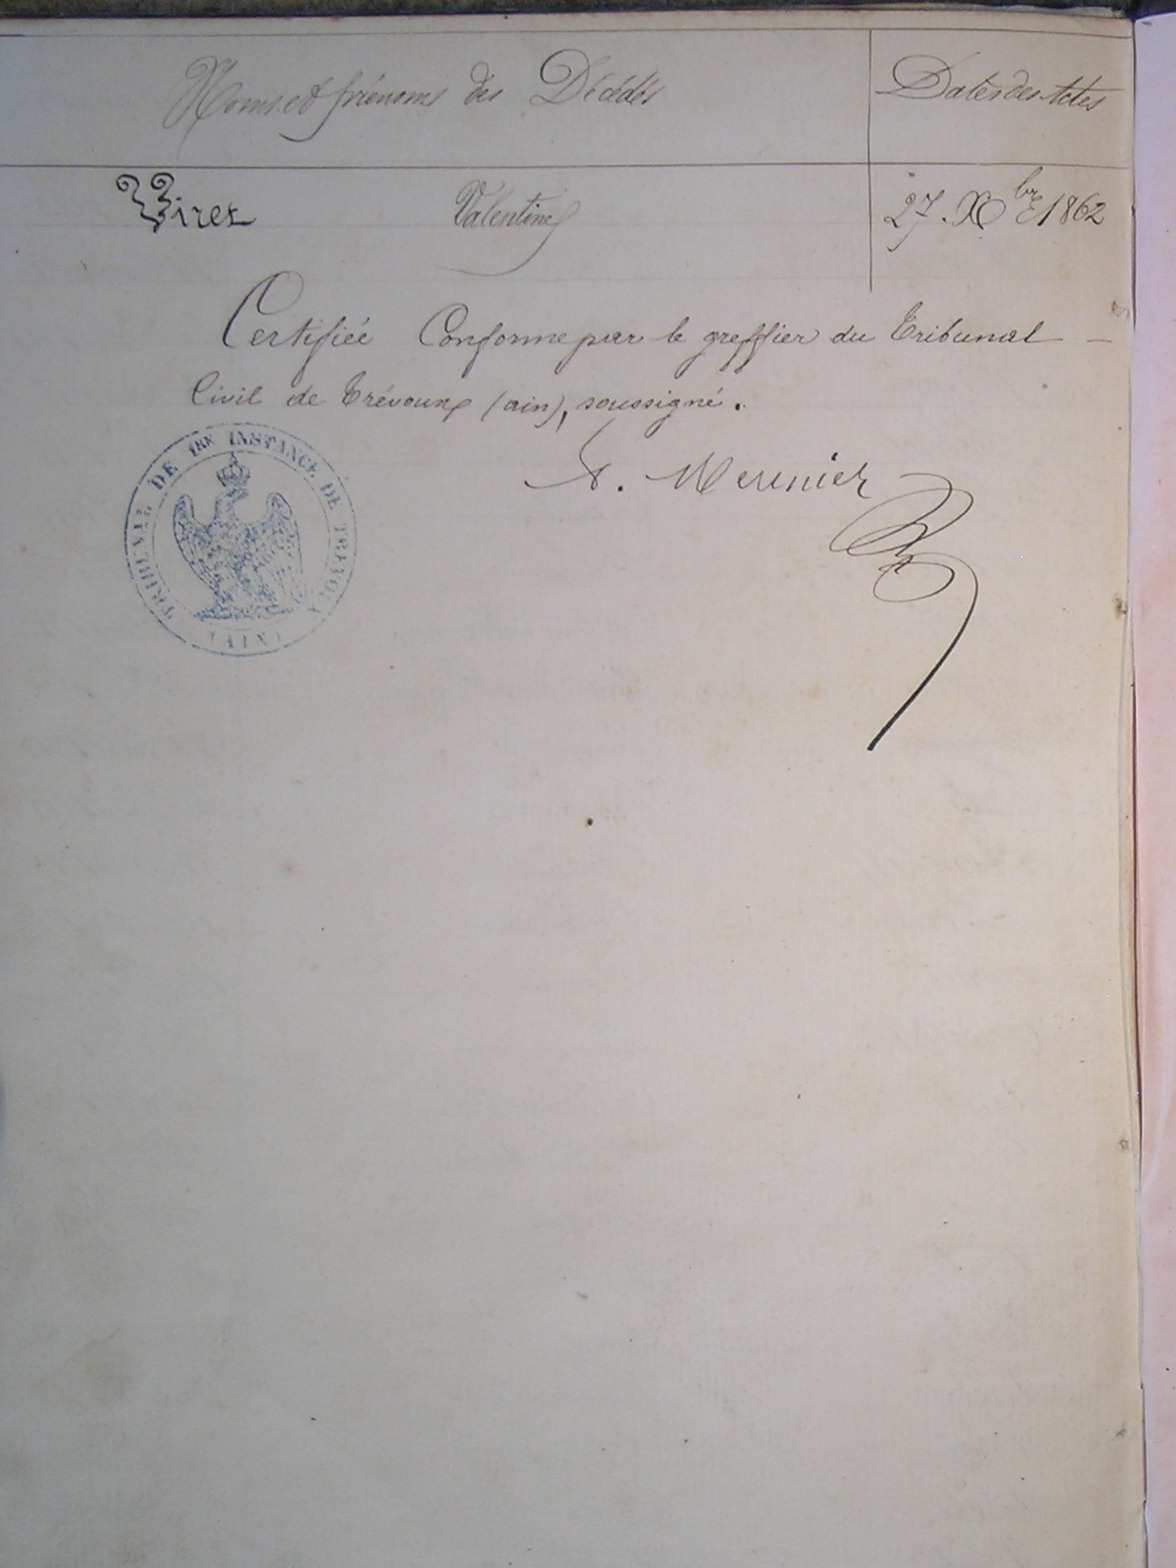 Noms et prénoms des Décédés
Dates des Actes
Viret Valentine 27. Xbre 1862
Certifiée Conforme par le greffier du Tribunal
Civil de Trévoux (ain), soussigné.
A. Meunier
TRIBUNAL DE 1RE INSTANCE DE TREVOUX
(AIN)